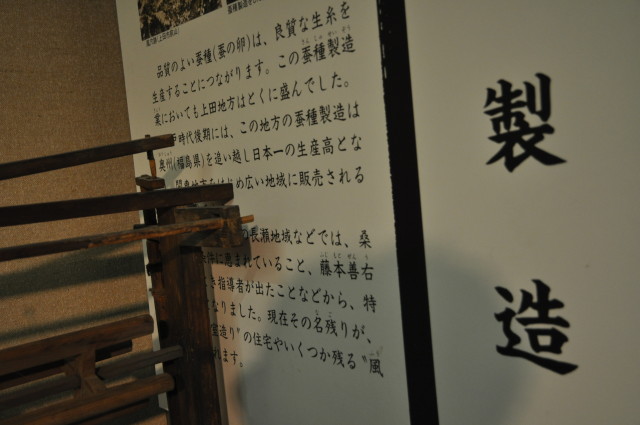 品質のよい蚕種(蚕の卵)は、良質な生糸を
生産することにつながります。この蚕種製造
業においても上田地方はとくに盛んでした。
時代後期には、この地方の蚕種製造は
奥州(福島県)を追い越し日本一の生産高とな
め広い地域に販売される
長瀬地域などでは、桑
に恵まれていること、藤本善右
き指導者が出たことなどから、特
なりました。現在その名残りが、
造り”の住宅やいくつか残る“風
ます。
製造